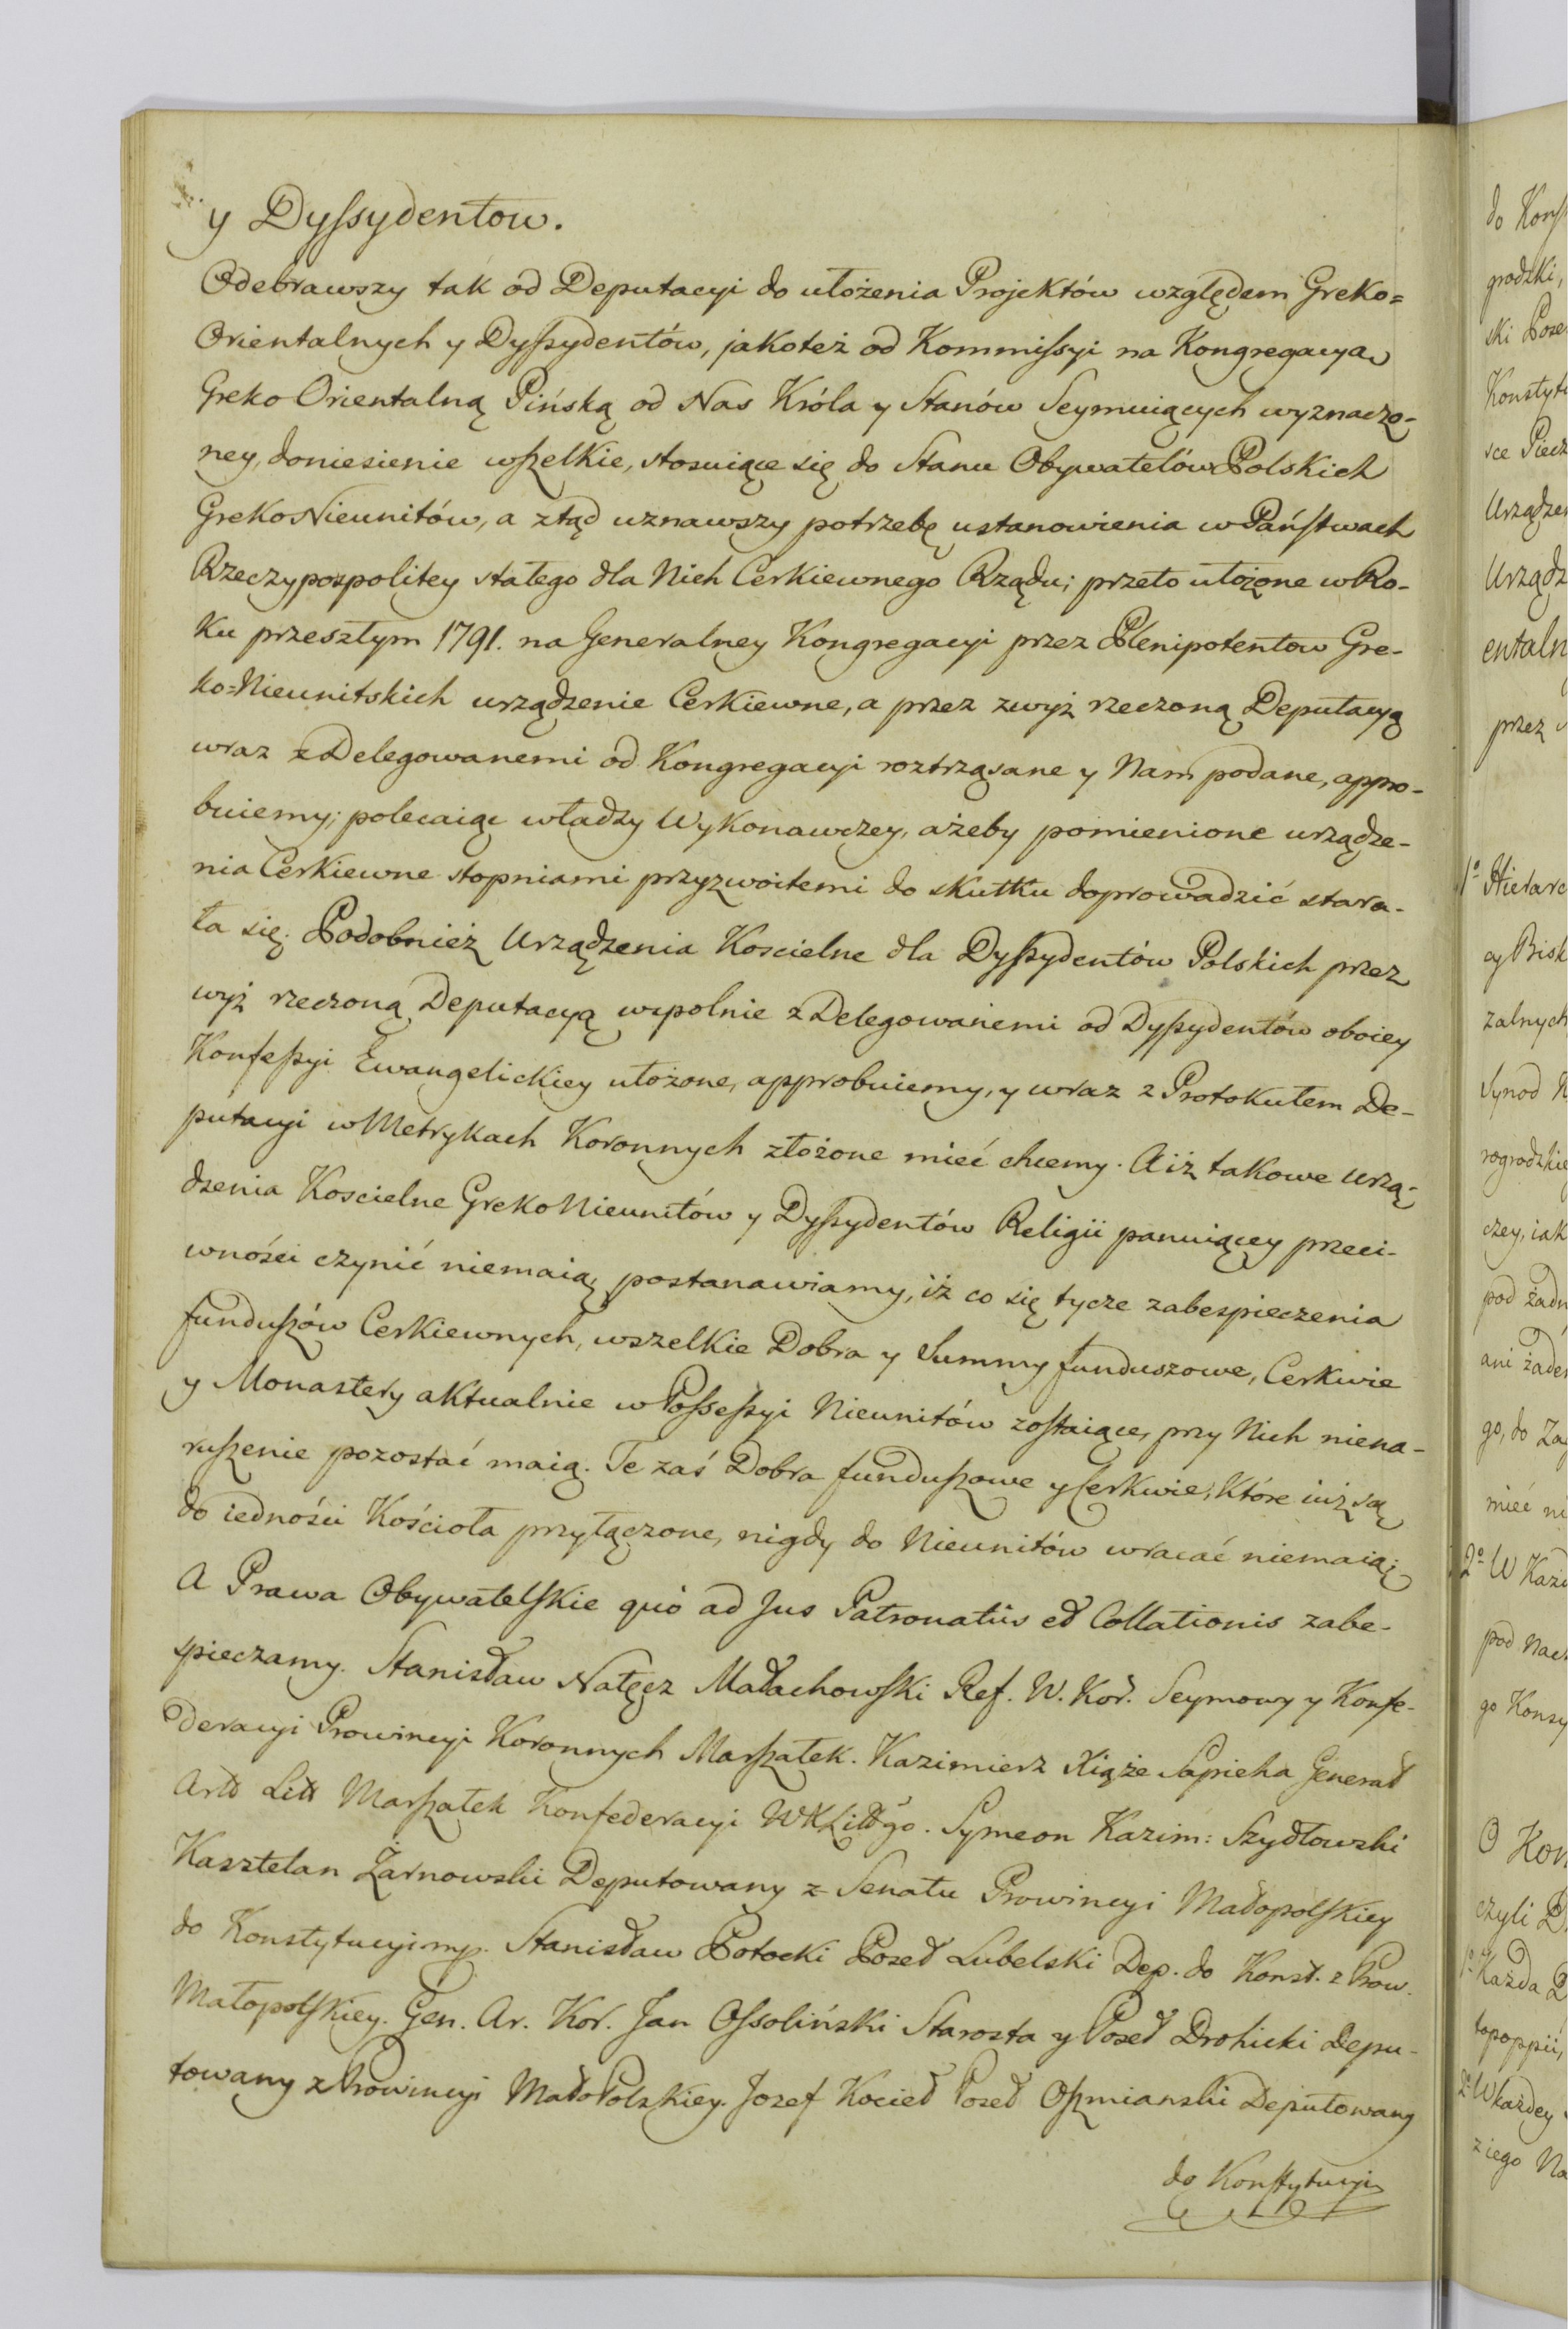 y Dyssydentow.
Odebrawszy tak od Deputacyi do ułożenia Projektów względem Greko=
Orientalnych y Dyssydentów, jakoteż od Kommissyi na Kongregacyą
Greko Orientalną Pińską od Nas Króla y Stanów Seymuiących wyznaczo-
ney, doniesienie wszelkie, stosuiące się do Stanu Obywatelów Polskich
Greko Nieunitów, a ztąd uznawszy potrzebę ustanowienia w Państwach
Rzeczypospolitey stałego dla Nich Cerkiewnego Rządu; przeto ułożone w Ro-
ku przeszłym 1791. na Generalney Kongregacyi przez Plenipotentow Gre-
ko=Nieunitskich urządzenie Cerkiewne, a przez zwyż rzeczoną Deputacyą
wraz z Delegowanemi od Kongregacyi roztrząsane y Nam podane, appro-
buiemy; polecaiąc władzy Wykonawczey, ażeby pomienione urządze-
nia Cerkiewne stopniami przyzwoitemi do skutku doprowadzić stara-
ła się. Podobnież Urządzenia Koscielne dla Dyssydentów Polskich przez
wyż rzeczoną Deputacyą wspolnie z Delegowanemi od Dyssydentów oboiey
Konfessyi Ewangelickiey ułożone, approbuiemy, y wraz z Protokułem De-
putacyi w Metrykach Koronnych złożone mieć chcemy. A iż takowe urzą-
dzenia Koscielne Greko Nieunitów y Dyssydentów Religii panuiącey przeci-
wności czynić niemaią, postanawiamy, iż co się tycze zabespieczenia
funduszów Cerkiewnych, wszelkie Dobra y Summy funduszowe, Cerkwie
y Monastery aktualnie w Possessyi Nieunitów zostaiące, przy Nich niena-
ruszenie pozostać maią. Te zaś Dobra funduszowe y Cerkwie, które iuż są
do iedności Kościoła przyłączone, nigdy do Nieunitów wracać niemaią;
A Prawa Obywatelskie quo ad Jus Patronatûs et Collationis zabe-
spieczamy. Stanisław Nałęcz Małachowski Ref. W. Kor. Seymowy y Konfe-
deracyi Prowincyi Koronnych Marszałek. Kazimierz Xiąże Sapieha Generał
Artt Litt Marszałek Konfederacyi WXLittgo. Symeon Kazim: Szydłowski
Kasztelan Żarnowski Deputowany z Senatu Prowincyi Małopolskiey
do Konstytucyi mp. Stanisław Potocki Poseł Lubelski Dep. do Konst. z Prow.
Małopolskiey. Gen. Ar. Kor. Jan Ossoliński Starosta y Poseł Drohicki Depu-
towany z Prowincyi MałoPolskiey. Jozef Kocieł Poseł Oszmianski Deputowany
do Konstytucyi